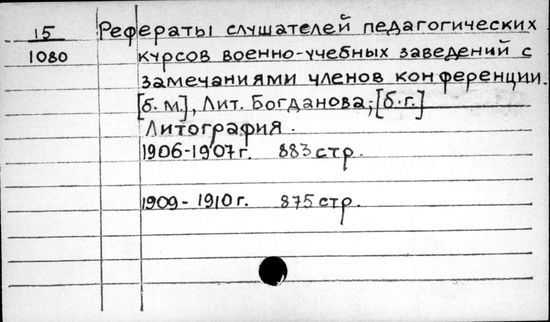 15 Рефераты слушателей педагогических
1080 курсов военно-учебных заведений с
замечаниями членов конференции.
[б.м], Лит. Богданова; [б.г.]
Литография.
1906-1907г. 883 стр.
1909-1910г. 875 стр.